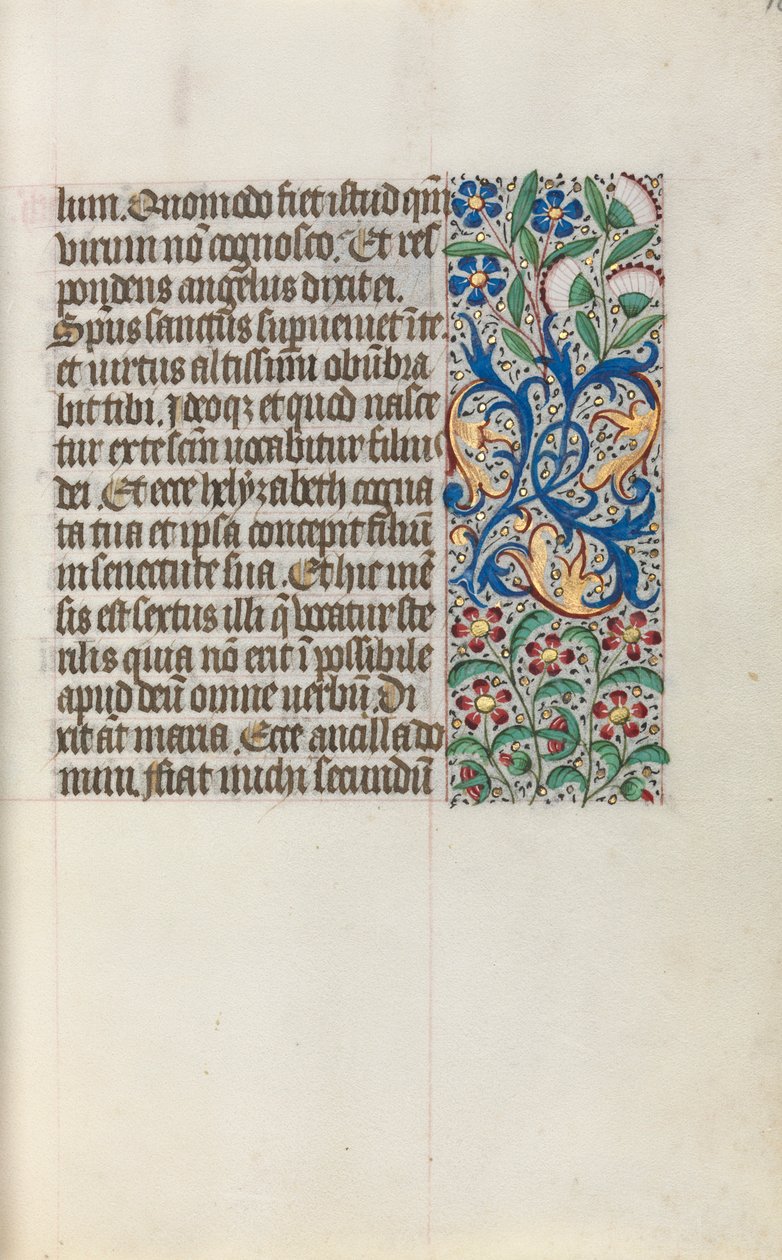 lum. Quomodo fiet istud qm̄
virum nō cognosco. Et res
pondens angelus dixit ei.
Sp̄us sanctus supueniet ī te
et uirtus altissimi obūbra
bit tibi. Ideoqz et quod nasce
tur ex te scm̄ uocabitur filius
dei. Et ecce helyzabeth cogna
ta tua et ipsa concepit filiū
in senectute sua. Et hic mē
sis est sextus illi q̄ vocatur ste
rilis quia nō erit ī possibile
apud deū omne uerbū. Di
xit āt maria. Ecce ancilla do
mini. ffiat michi secundū